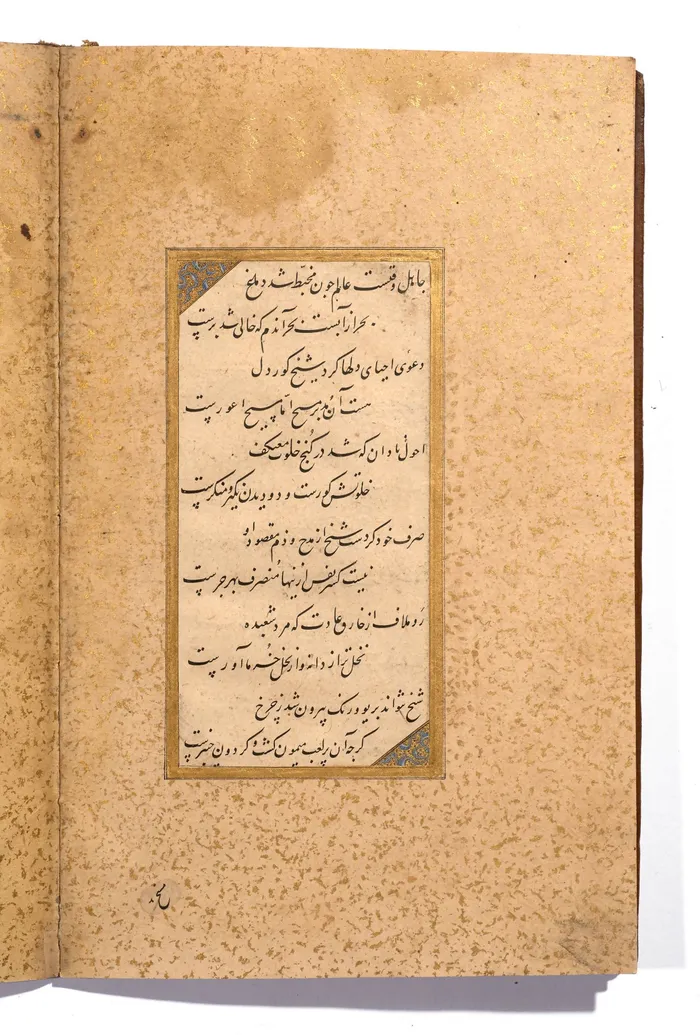 جاهل وقتست عالم چون مخبّط شد دماغ
بحر از آبست بحر آندم که خالی شد برست
دعوی احیای دلها کرد شیخ کور دل
هست آن مدبر مسیح امّا مسیح اعورست
احول نادان که شد در کنج خلوت معتکف
خلوتش گورست و دو دیدن نکیر و منکرست
صرف خود کردست شیخ از مدح و ذم مقصود او
نیست کسر نفس ازینها منصرف بهر جرست
رو ملاف از خارق عادت که مرد شعبده
نخل تر از دانه و از نخل خرما آورست
شیخ نتواند بریو و رنگ بیرون شد ز چرخ
گرچه آن پر لعب میمون گشت و گردون چنبرست